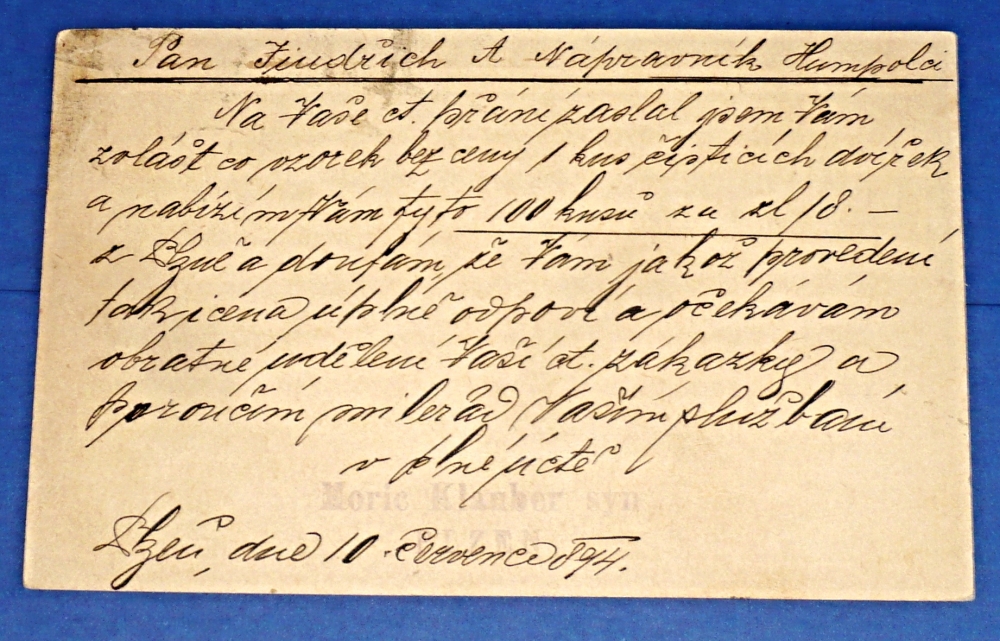 Pan Jindřich A Nápravník Humpolci
Na Vaše ct. přání zaslal jsem Vám
zvlášt co vzorek bez ceny 1 kus čisticích dvířek
a nabízím Vám tyto 100 kusů za zl 18. —
z Plzně a doufám, že Vám jakož provedení
tak i cena úplně odpoví a očekávám
obratné udělení Vaší ct. zákazky a
poroučím milerád Vašim službám
v plné úctě
Moric Klauber syn
PLZEŇ
Plzeň, dne 10. července 894.